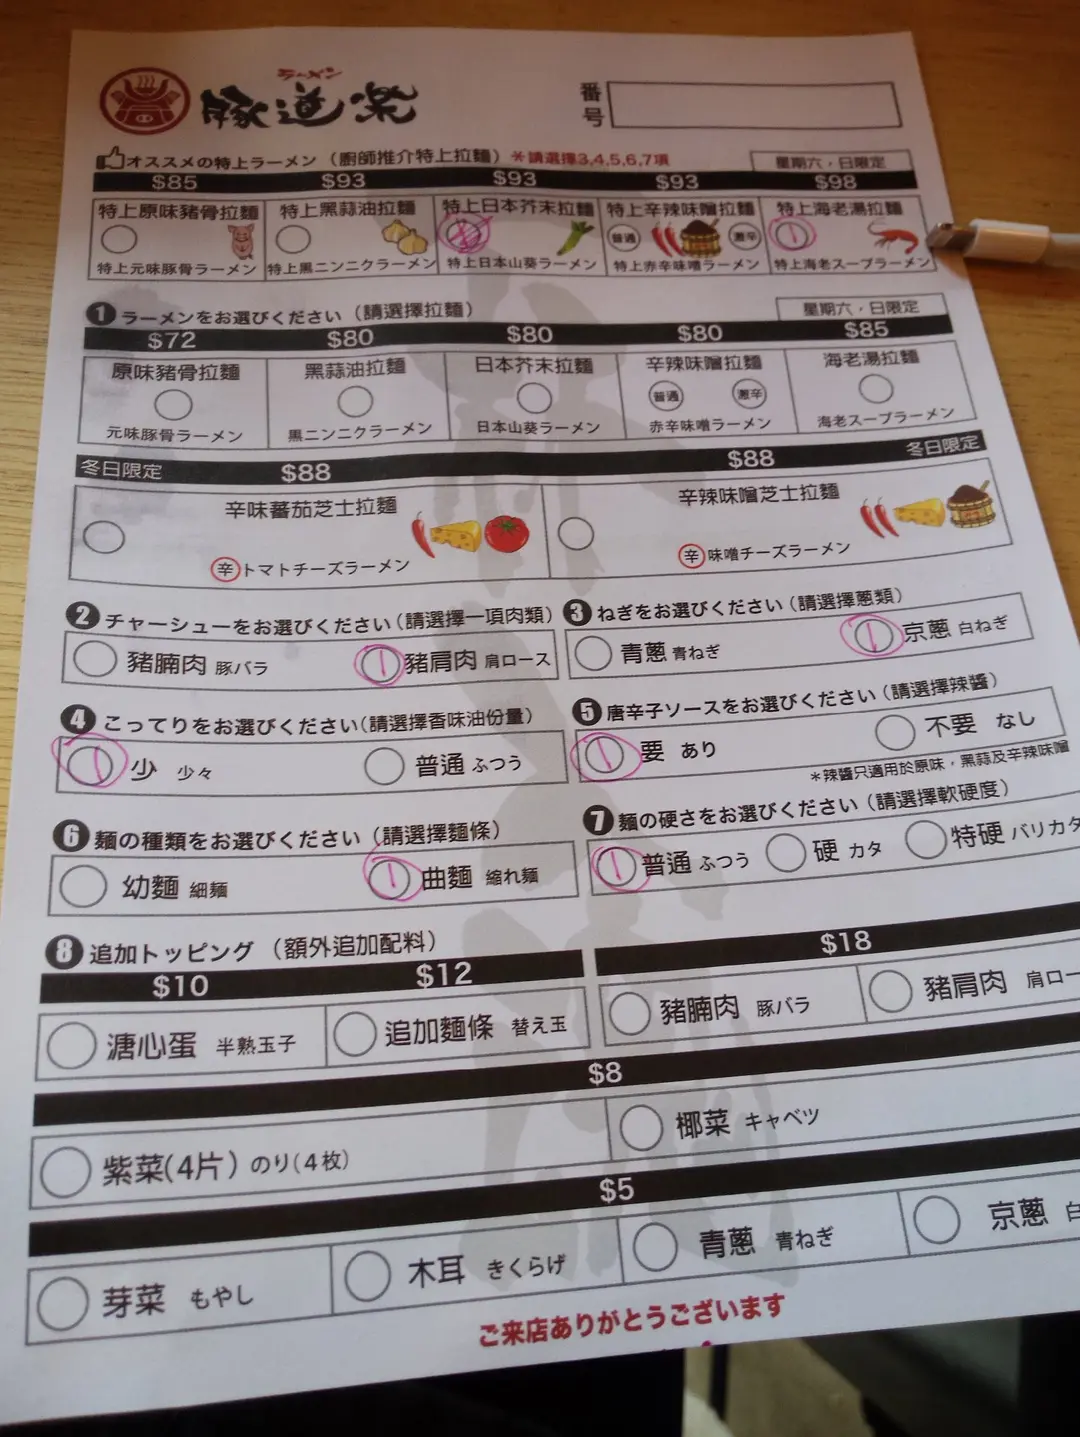 ラーメン
豚道楽
番号
オススメの特上ラーメン（廚師推介特上拉麵）＊請選擇3,4,5,6,7項
星期六，日限定
$85 $93 $93 $93 $98
特上原味豬骨拉麵 特上黑蒜油拉麵 特上日本芥末拉麵 特上辛辣味噌拉麵 特上海老湯拉麵
普通 激辛
特上元味豚骨ラーメン 特上黒ニンニクラーメン 特上日本山葵ラーメン 特上赤辛味噌ラーメン 特上海老スープラーメン
1 ラーメンをお選びください（請選擇拉麵）
星期六，日限定
$72 $80 $80 $80 $85
原味豬骨拉麵 黑蒜油拉麵 日本芥末拉麵 辛辣味噌拉麵 海老湯拉麵
普通 激辛
元味豚骨ラーメン 黒ニンニクラーメン 日本山葵ラーメン 赤辛味噌ラーメン 海老スープラーメン
冬日限定 $88 $88 冬日限定
辛味蕃茄芝士拉麵 辛辣味噌芝士拉麵
辛トマトチーズラーメン 辛味噌チーズラーメン
2 チャーシューをお選びください（請選擇一項肉類）
豬腩肉 豚バラ 豬肩肉 肩ロース
3 ねぎをお選びください（請選擇蔥類）
青蔥 青ねぎ 京蔥 白ねぎ
4 こってりをお選びください（請選擇香味油份量）
少 少々 普通 ふつう
5 唐辛子ソースをお選びください（請選擇辣醬）
要 あり 不要 なし
＊辣醬只適用於原味，黑蒜及辛辣味噌
6 麺の種類をお選びください（請選擇麵條）
幼麵 細麺 曲麵 縮れ麺
7 麺の硬さをお選びください（請選擇軟硬度）
普通 ふつう 硬 カタ 特硬 バリカタ
8 追加トッピング（額外追加配料）
$10 $12 $18
溏心蛋 半熟玉子 追加麵條 替え玉 豬腩肉 豚バラ 豬肩肉 肩ロー
$8
紫菜(4片) のり(4枚) 椰菜 キャベツ
$5
芽菜 もやし 木耳 きくらげ 青蔥 青ねぎ 京蔥 白
ご来店ありがとうございます